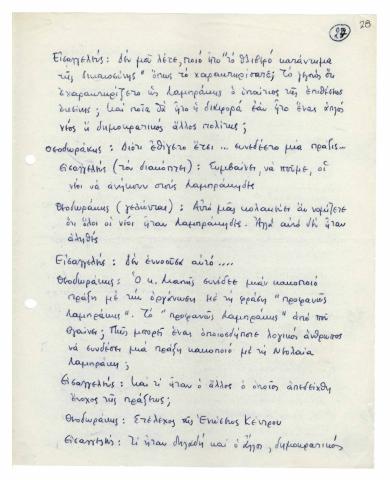 28
27
Εἰσαγγελής: Δέν μᾶς λέτε, ποιό ἦτο "τό θλιβερό κατάντημα
τῆς δικαιοσύνης" ὅπως τό χαρακτηρίσατε; Τό γεγονός ὅτι
ἐχαρακτηρίζετο ὡς Λαμπράκης ὁ ὑπαίτιος τῆς ἐπιθέσεως
ἐκείνης; καί ποία θά ἦτο ἡ διαφορά ἐάν ἦτο ἕνας ἁπλός
νέος ἤ δημοκρατικός ἄλλος πολίτης;
Θεοδωράκης: Διότι ἐθίγετο ἔτσι... συνεδέετο μία πρᾶξις...
Εἰσαγγελής (τόν διακόπτει): Συμβαίνει, νά ποῦμε, οἱ
νέοι νά ἀνήκουν στούς Λαμπράκηδες
Θεοδωράκης (γελώντας): Αὐτό μᾶς κολακεύει ἄν νομίζετε
ὅτι ὅλοι οἱ νέοι ἦταν Λαμπράκηδες. Ἀλλά αὐτό δέν ἦταν
ἀληθές
Εἰσαγγελής: Δέν ἐννοοῦσα αὐτό....
Θεοδωράκης: Ὁ κ. συνέδεε μιάν κακοποιό
πρᾶξη μέ τήν ὀργάνωση μέ τή φράση "προφανῶς
Λαμπράκης". Τό "προφανῶς Λαμπράκης" ἀπό ποῦ
βγαίνει; Πῶς μπορεῖ ἕνας ὁποιοσδήποτε λογικός ἄνθρωπος
νά συνδέσει μιά πρᾶξη κακοποιό μέ τή Νεολαία
Λαμπράκη;
Εἰσαγγελής: καί τί ἦταν ὁ ἄλλος ὁ ὁποῖος ἀπεδείχθη
ἔνοχος τῆς πράξεως;
Θεοδωράκης: Στέλεχος τῆς Ἑνώσεως Κέντρου
Εἰσαγγελής: Τί ἦταν δηλαδή καί ὁ , δημοκρατικός